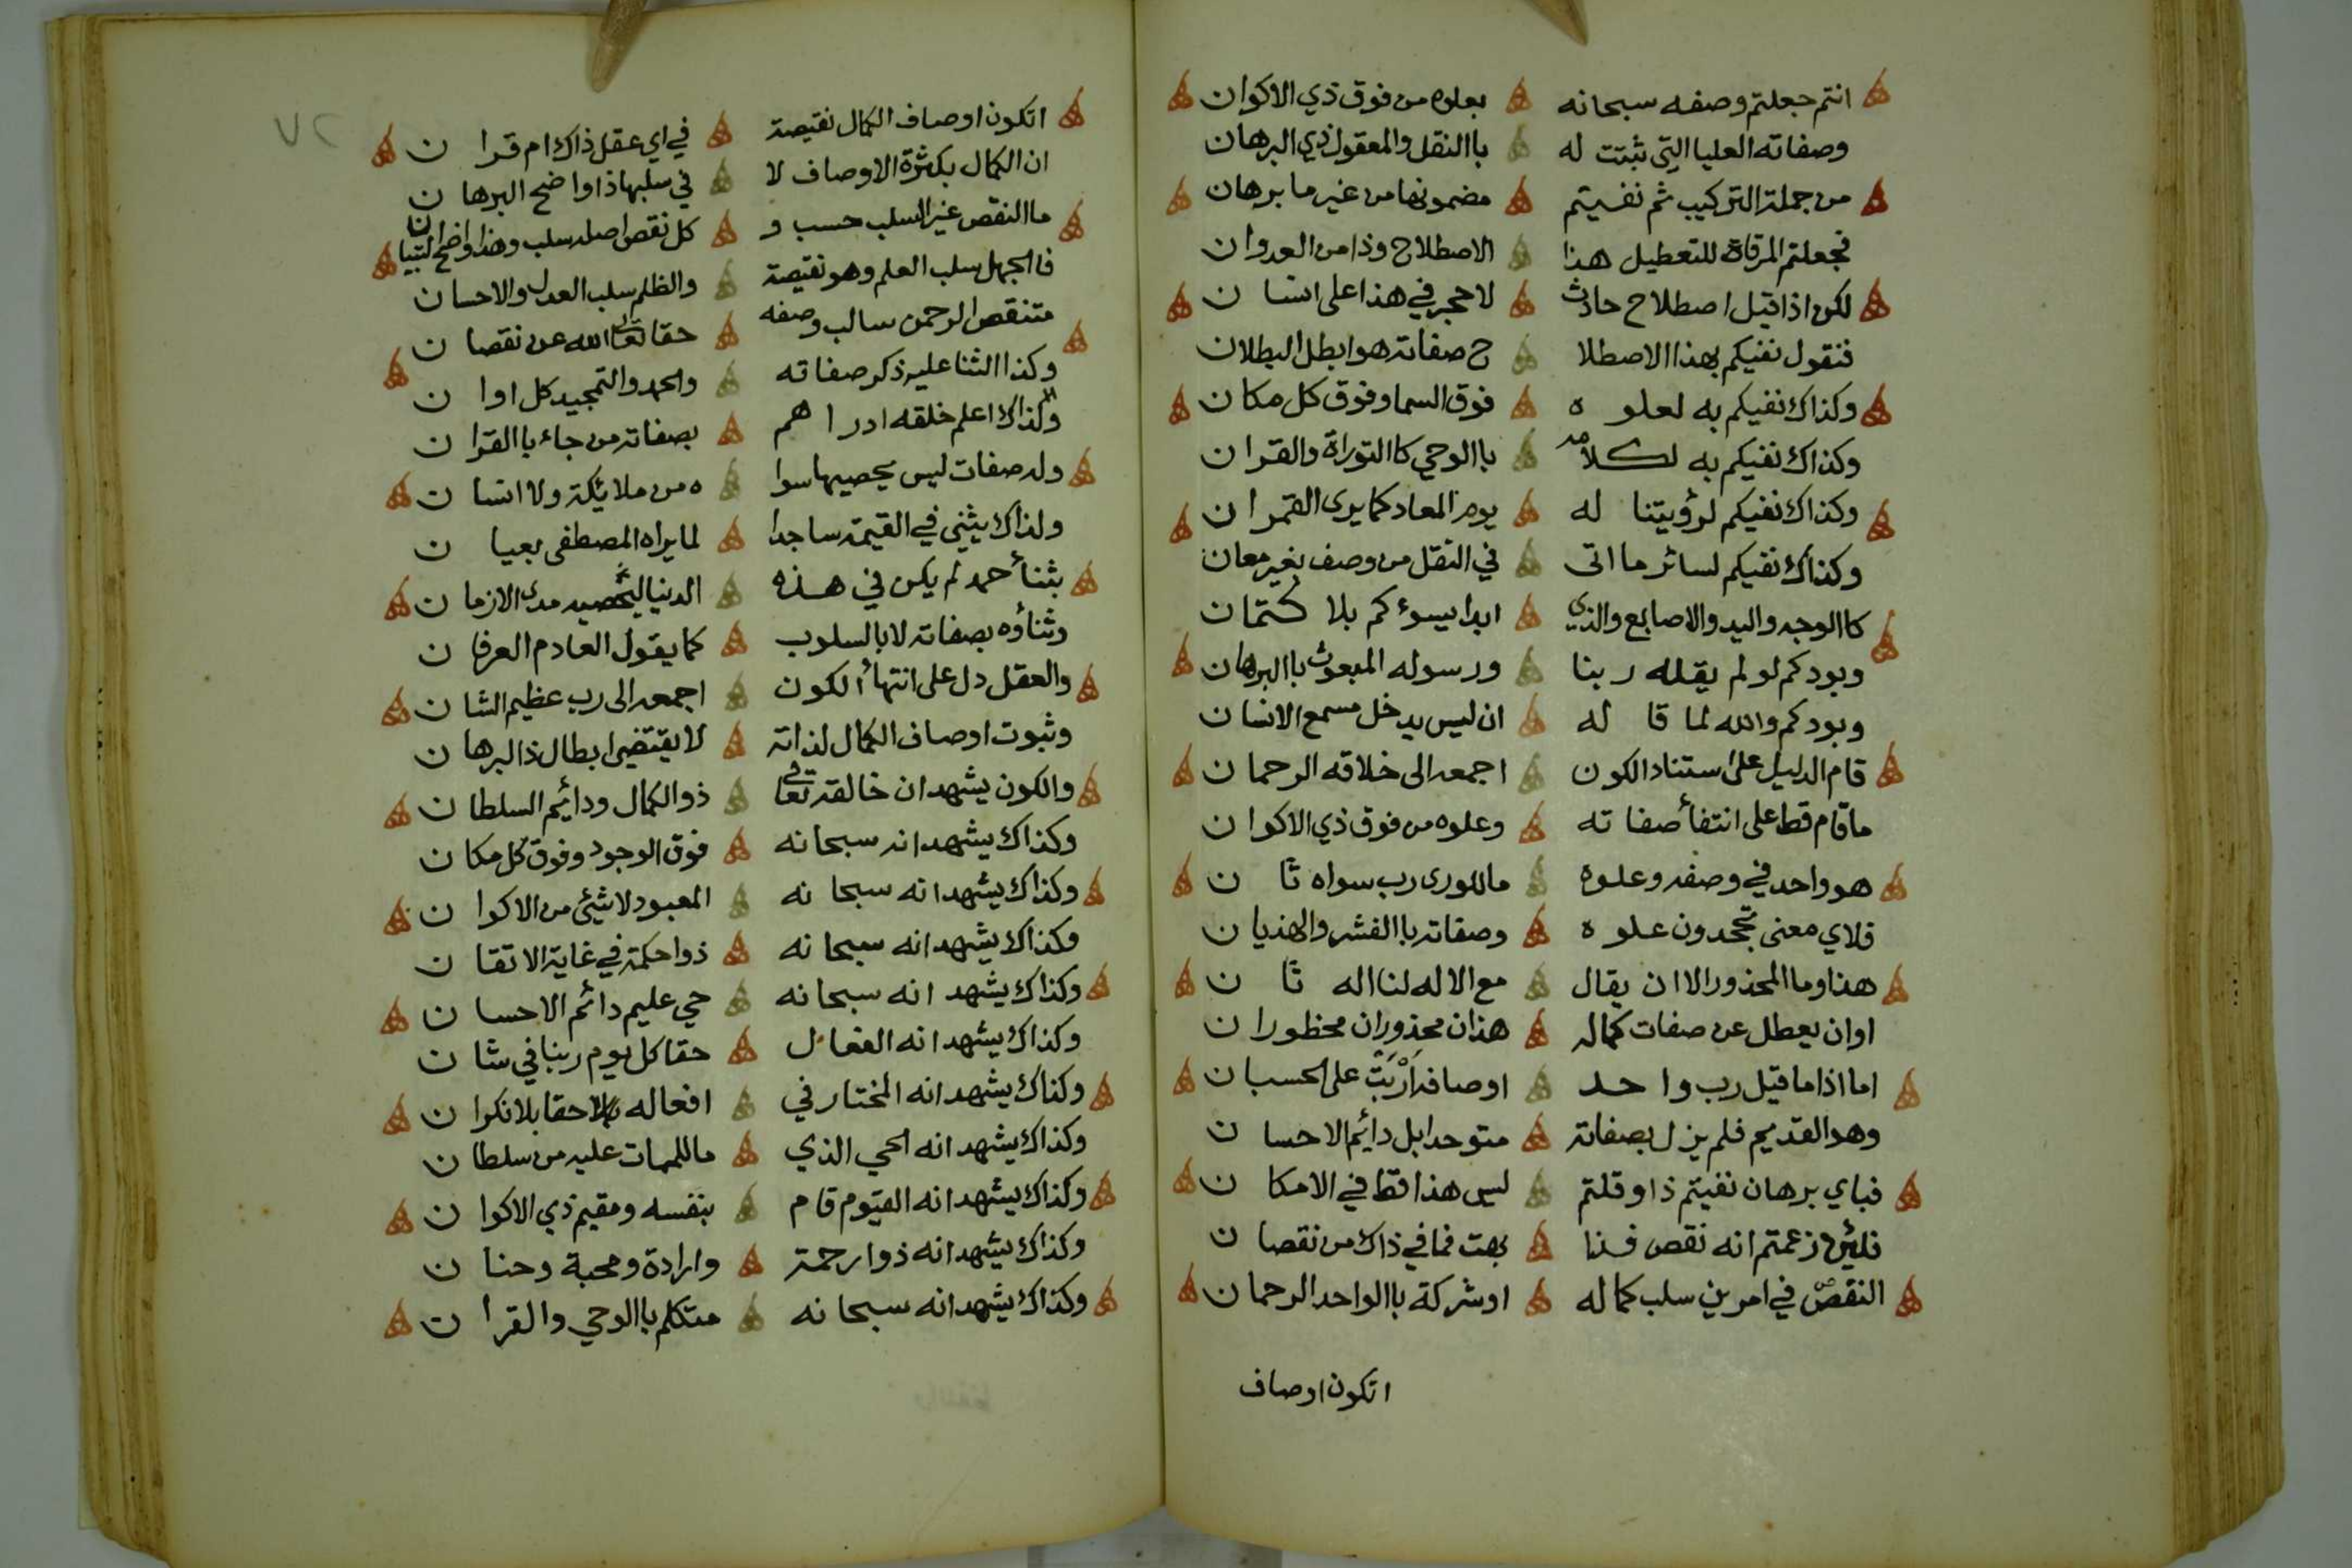 انتم جعلتم وصفه سبحانه بعلوه من فوق ذي الاكوان
وصفاته العليا التي ثبتت له باالنقل والمعقول ذي البرهان
من جملة التركيب ثم نفيتم مضمونها من غير ما برهان
فجعلتم المرقاة للتعطيل هذا الاصطلاح وذا من العدوان
لكن اذا قيل اصطلاح حادث لا حجر في هذا على انسان
فنقول نفيكم بهذا الاصطلا ح صفاته هو ابطل البطلان
وكذاك نفيكم به لعلوه فوق السما وفوق كل مكان
وكذاك نفيكم به لكلامه باالوحي كاالتوراة والقران
وكذاك نفيكم لرؤيتنا له يوم المعاد كما يرى القمران
وكذاك نفيكم لسائر ما اتى في النقل من وصف بغير معان
كاالوجه واليد والاصابع والذي ابدا يسوءكم بلا كتمان
وبودكم لو لم يقله ربنا ورسوله المبعوث باالبرهان
وبودكم والله لما قاله ان ليس يدخل مسمع الانسان
قام الدليل على استناد الكون اجمعه الى خلاقه الرحمان
ما قام قط على انتفأ صفاته وعلوه من فوق ذي الاكوان
هو واحد في وصفه وعلوه ما للورى رب سواه ثان
فلاي معنى تجحدون علوه وصفاته باالفشر والهذيان
هذا وما المحذور الا ان يقال مع الاله لنا اله ثان
او ان يعطل عن صفات كماله هذان محذوران محظوران
اما اذا ما قيل رب واحد اوصافه اربت على الحسبان
وهو القديم فلم يزل بصفاته متوحدا بل دائم الاحسان
فباي برهان نفيتم ذا وقلتم ليس هذا قط في الامكان
فلئن زعمتم انه نقص فذا بهت فما في ذاك من نقصان
النقص في امرين سلب كماله او شركة باالواحد الرحمان
اتكون اوصاف
٧٢
اتكون اوصاف الكمال نقيصة في اي عقل ذاك ام قران
ان الكمال بكثرة الاوصاف لا في سلبها ذا واضح البرهان
ما النقص غير السلب حسب و كل نقص اصله سلب وهذا واضح التبيان
فاالجهل سلب العلم وهو نقيصة والظلم سلب العدل والاحسان
متنقص الرحمن سالب وصفه حقا تعالى الله عن نقصان
وكذا الثنا عليه ذكر صفاته والحمد والتمجيد كل اوان
ولذاك اعلم خلقه ادراهم بصفاته من جاء باالقران
وله صفات ليس يحصيها سوا ه من ملائكة ولا انسان
ولذاك يثني في القيمة ساجدا لما يراه المصطفى بعيان
بثنأ حمد لم يكن في هذه الدنيا ليحصيه مدى الازمان
وثنأوه بصفاته لا بالسلوب كما يقول العادم العرفان
والعقل دل على انتهأ الكون اجمعه الى رب عظيم الشان
وثبوت اوصاف الكمال لذاته لا يقتضي ابطال ذا البرهان
والكون يشهد ان خالقه تعالى ذو الكمال ودائم السلطان
وكذاك يشهد انه سبحانه فوق الوجود وفوق كل مكان
وكذاك يشهد انه سبحانه المعبود لا شيئ من الاكوان
وكذاك يشهد انه سبحانه ذوا حكمة في غاية الاتقان
وكذاك يشهد انه سبحانه حي عليم دائم الاحسان
وكذاك يشهد انه الفعال حقا كل يوم ربنا في شان
وكذاك يشهد انه المختار في افعاله حقا بلا نكران
وكذاك يشهد انه الحي الذي ما للممات عليه من سلطان
وكذاك يشهد انه القيوم قام بنفسه ومقيم ذي الاكوان
وكذاك يشهد انه ذوا رحمة وارادة ومحبة وحنان
وكذاك يشهد انه سبحانه متكلم باالوحي والقران